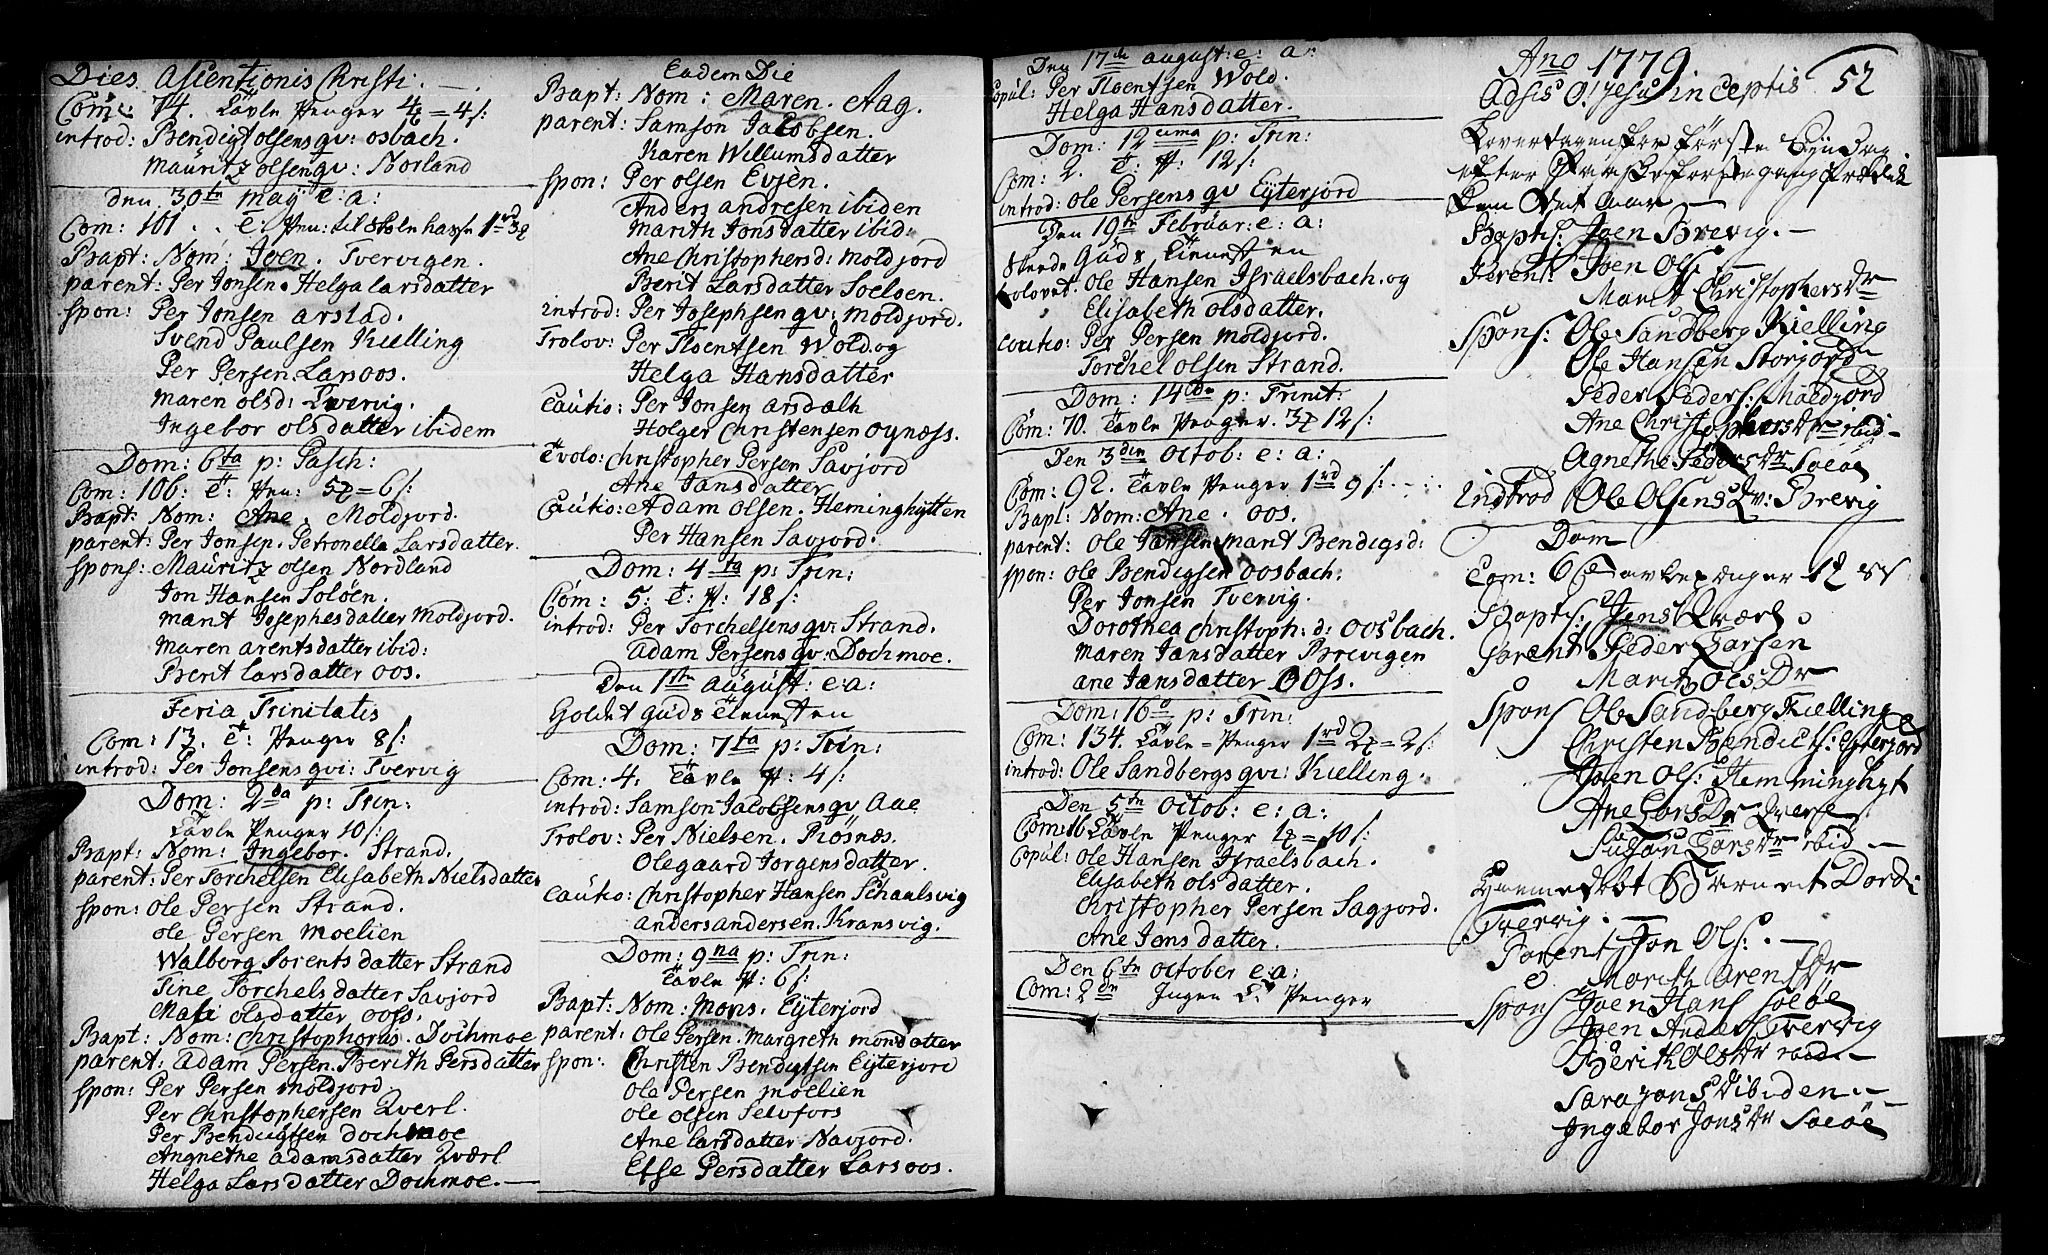 Dies Ascentionis Christi: —.
Com: 74. Tavle Penger 4 = 4 s:
introd: Bendigt olsens qv: osbach.
Mauritz olsen qv: Norland
den 30te may e: a:
Com: 101 . . T: Pen: til Stolehaxse 1rd 3
Bapt: Nom: Joen. Tvervigen.
parent: Per Jonsen. Helga larsdatter
spon: Per Jonsen arstad.
Svend Paulsen Kielling
Per Persen. Larsoos.
maren olsd: Tvervig.
Ingebor olsdatter ibidem
Dom: 6ta p: Pasch:
Com: 106: T: Pen: 5 = 6 s:
Bapt: Nom: Ane. Moldjord.
parent: Per Jonsen. Petronella Larsdatter.
spons: Mauritz olsen Nordland
Jon Hansen Soløen.
marit Josephsdatter Moldjord.
maren arentsdatter ibid:
Berit larsdatter oos.
Feria Trinitatis
Com: 13. T: Penger 8 s:
introd: Per Jonsens qvi: Tvervig
Dom: 2da p: Trin:
Tavle Penger 10 s:
Bapt: Nom: Ingebor. Strand.
parent: Per Torchelsen Elisabeth Nielsdatter
spon: Ole Persen Strand.
ole Persen moelien
Walborg Sorents datter Strand
Tine Torchels datter Savjord
Mari olsdatter ooss.
Bapt: Nom: Christophorus. Dochmoe
parent: Adam Persen. Berith Persdatter
spon: Per Persen moldjord
Per Christophersen Qverl.
Per Bendigtsen Dochmoe
Angnethe adamsdatter Qværl
Helga Larsdatter Dochmoe. —
Eadem Die
Bapt: Nom: Maren. Aag.
parent: Samson Jacobsen.
Karen Willumsdatter
spon: Per olsen Evjen.
Anders andresen ibiden
Marith Jonsdatter ibid:
Ane Christophersd: moldjord
Berit Larsdatter Soelsen.
introd: Per Josephsen qv: moldjord.
Trolov: Per Floentsen Wold og
Helga Hansdatter
Cautio: Per Jonsen arsdalh
Holger Christensen oynæss.
Trolo: Christopher Persen Savjord
Ane Jansdatter
Cautio: Adam olsen. Heminghytten
Per Hansen Savjord.
Dom: 4ta p: Trin:
Com: 5: T: P: 18 s:
introd: Per Torchelsens qv: Strand.
Adam Persens qv: Dochmoe.
Den 1ste august: e: a:
Holdet Guds Tienesten
Dom: 7ta p: Trin:
Com: 4: Tavle P: 4 s:
introd: Samson Jacobsens qv Aae
Trolov: Per Nielsen. Rösnæs.
Olegaard Jorgensdatter.
Cautio: Christopher Hansen Schaulsvig
anders andersen. Kransvig.
Dom: 9na p: Trin:
Tavle P: 6 s:
Bapt: Nom: Mons. Eyterjord
parent: Ole Persen. Margreth monsdatter
spon: Christen Bendigtsen Eyterjord
Ole Persen moelien
ole olsen Selvfors
Ane larsdatter Navjord.
Else Persdatter Larsoos.
Den 17de august: e: a:
Copul: Per Floentsen Wold.
Helga Hansdatter.
Dom: 12cima p: Trin:
Com: 2. T: P: 12 s:
introd: ole Persens qv Eyterjord
Den 19te Februar: e: a:
Skeede Guds Tienesten
Trolovet. Ole Hansen Israelsbach. og
Elisabeth olsdatter.
Coutio: Per Persen moldjord.
Torchel olsen Strand.
Dom: 14de p: Trinit:
Com: 70. Tavle Penger. 3 12 s:
Den 3den octob: e: a:
Com: 92. Tavle Penger 1rd 9 s:
Bapt: Nom: Ane. oos.
parent: ole Jansen marit Bendigsd:
spon: ole Bendigsen oosbach:
Per Jonsen Tvervig.
Dorothea Christoph: d: Oosbach.
maren Jansdatter Brevigen
ane Jansdatter Ooss.
Dom: 16 p: Trin:
Com: 134. Tavle = Penger 1rd 2 = 2 s:
introd: Ole Sandbergs qvi: Kielling.
Den 5te octob: e: a:
Com: 16 Tavle Penger 1 = 10 s:
Copul: Ole Hansen Israelsbach.
Elisabeth olsdatter.
Christopher Persen Sagjord.
Ane Jonsdatter.
Den 6te october e: a:
Com: 2de Ingen T: Penger
Ano 1779 52
Adsis O! Jesu inceptis
første Syndag
efter
Baptis: Joen Brevig. —
Parent: Joen Ols: —
Marit Christophers Dr
Spons: Ole Sandberg Kielling
Ole Hansen Storjord
Peder Peders: Moldjord
Ane Christophers Dr ibid —
Agnethe Peders Dr Soløe
Indtrod Ole Olsens Qv: Brevig
Dom
Com: 66
Baptis: Jens Qværl
Parent Peder Larsen
Marit Ols Dr
Spons Ole Sandberg Kielling
Christen Bendicts: Eyterjord
Joen Ols: Hemminghyt
Ane Lars Dr Qværl
Susan Lars Dr ibid —
Hiemmedøbt Barnet Dordi
Tvervig. —
Parent Jon Ols: . —
Marith Arents Dr
Spons Joen Hans Soløe
Joen Anders Tvervig
Berith Ols Dr ibid. —
Sara Jons D ibiden. —
Ingebor Jons Dr Soløe